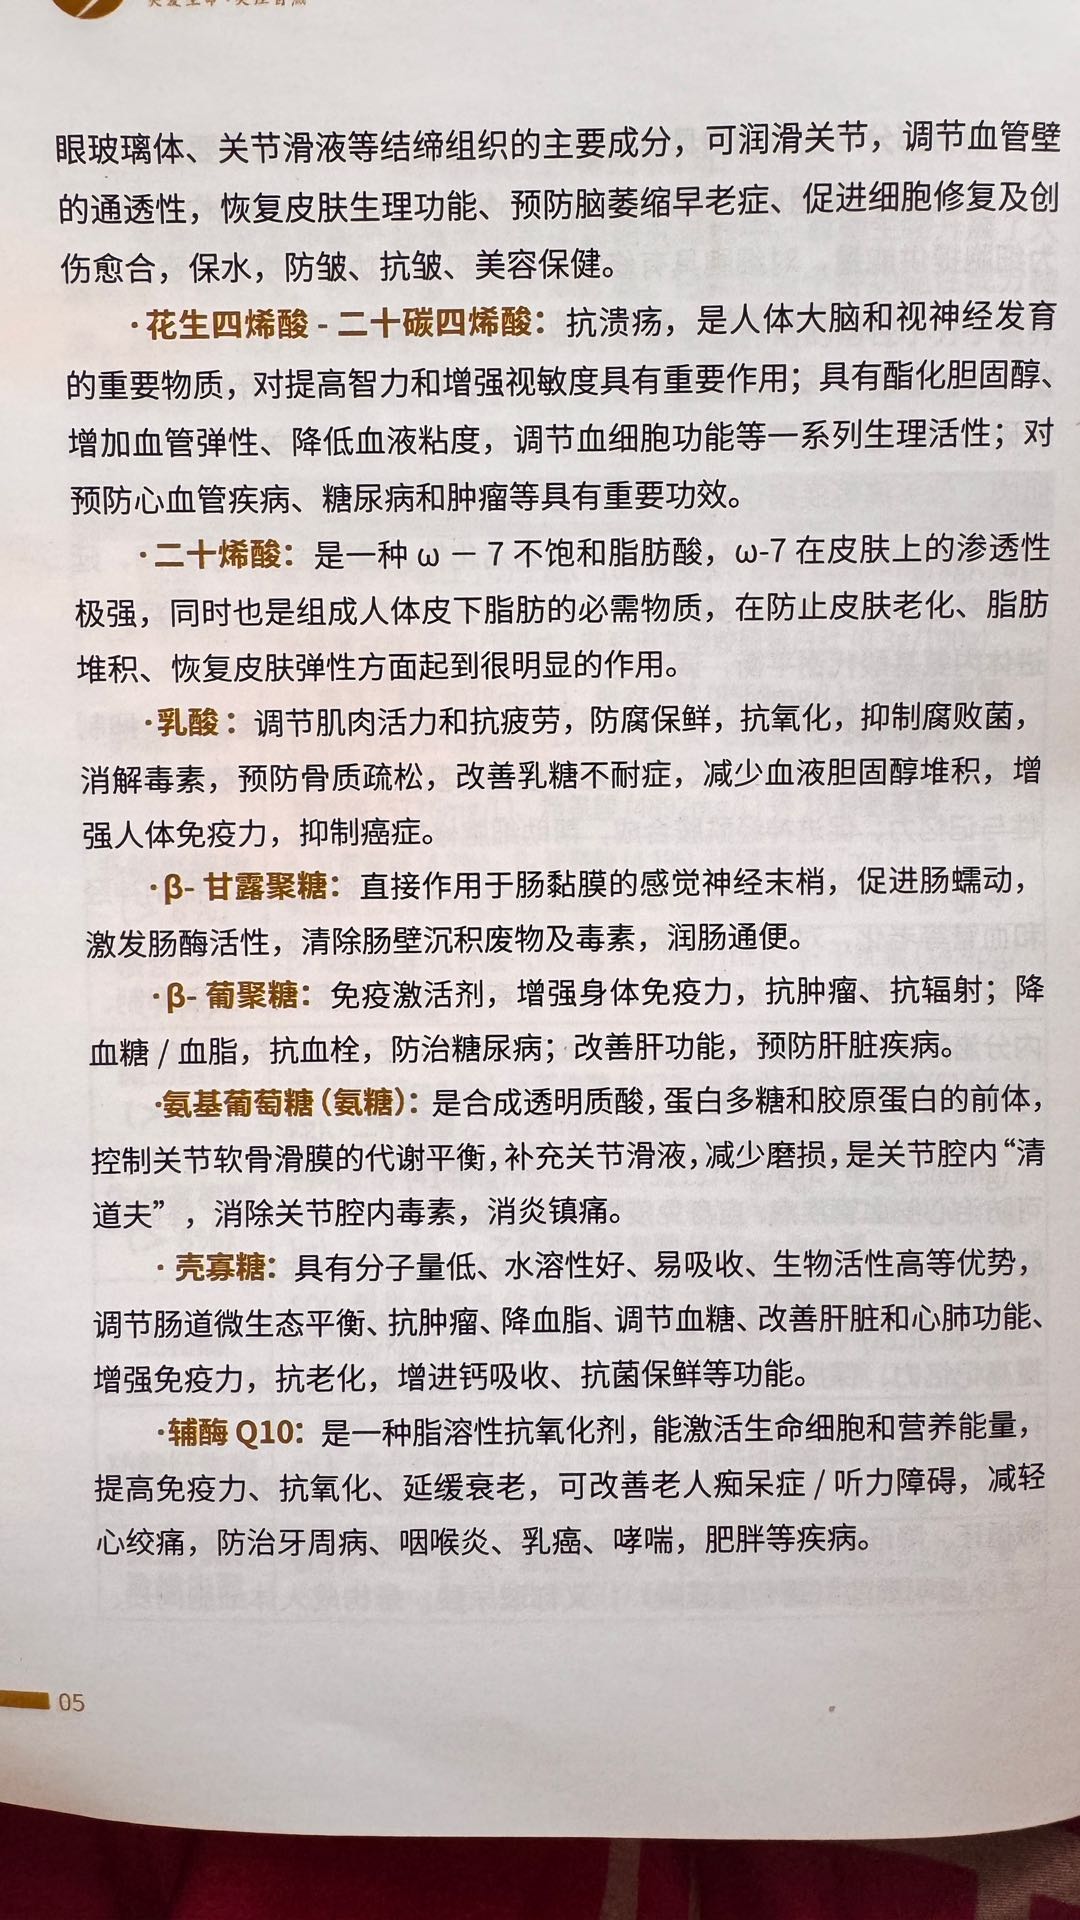 眼玻璃体、关节滑液等结缔组织的主要成分，可润滑关节，调节血管壁
的通透性，恢复皮肤生理功能、预防脑萎缩早老症、促进细胞修复及创
伤愈合，保水，防皱、抗皱、美容保健。
·花生四烯酸 - 二十碳四烯酸：抗溃疡，是人体大脑和视神经发育
的重要物质，对提高智力和增强视敏度具有重要作用；具有酯化胆固醇、
增加血管弹性、降低血液粘度，调节血细胞功能等一系列生理活性；对
预防心血管疾病、糖尿病和肿瘤等具有重要功效。
·二十烯酸：是一种 ω － 7 不饱和脂肪酸，ω-7 在皮肤上的渗透性
极强，同时也是组成人体皮下脂肪的必需物质，在防止皮肤老化、脂肪
堆积、恢复皮肤弹性方面起到很明显的作用。
·乳酸：调节肌肉活力和抗疲劳，防腐保鲜，抗氧化，抑制腐败菌，
消解毒素，预防骨质疏松，改善乳糖不耐症，减少血液胆固醇堆积，增
强人体免疫力，抑制癌症。
·β- 甘露聚糖：直接作用于肠黏膜的感觉神经末梢，促进肠蠕动，
激发肠酶活性，清除肠壁沉积废物及毒素，润肠通便。
·β- 葡聚糖：免疫激活剂，增强身体免疫力，抗肿瘤、抗辐射；降
血糖 / 血脂，抗血栓，防治糖尿病；改善肝功能，预防肝脏疾病。
·氨基葡萄糖（氨糖）：是合成透明质酸，蛋白多糖和胶原蛋白的前体，
控制关节软骨滑膜的代谢平衡，补充关节滑液，减少磨损，是关节腔内“清
道夫”，消除关节腔内毒素，消炎镇痛。
· 壳寡糖：具有分子量低、水溶性好、易吸收、生物活性高等优势，
调节肠道微生态平衡、抗肿瘤、降血脂、调节血糖、改善肝脏和心肺功能、
增强免疫力，抗老化，增进钙吸收、抗菌保鲜等功能。
·辅酶 Q10：是一种脂溶性抗氧化剂，能激活生命细胞和营养能量，
提高免疫力、抗氧化、延缓衰老，可改善老人痴呆症 / 听力障碍，减轻
心绞痛，防治牙周病、咽喉炎、乳癌、哮喘，肥胖等疾病。
05